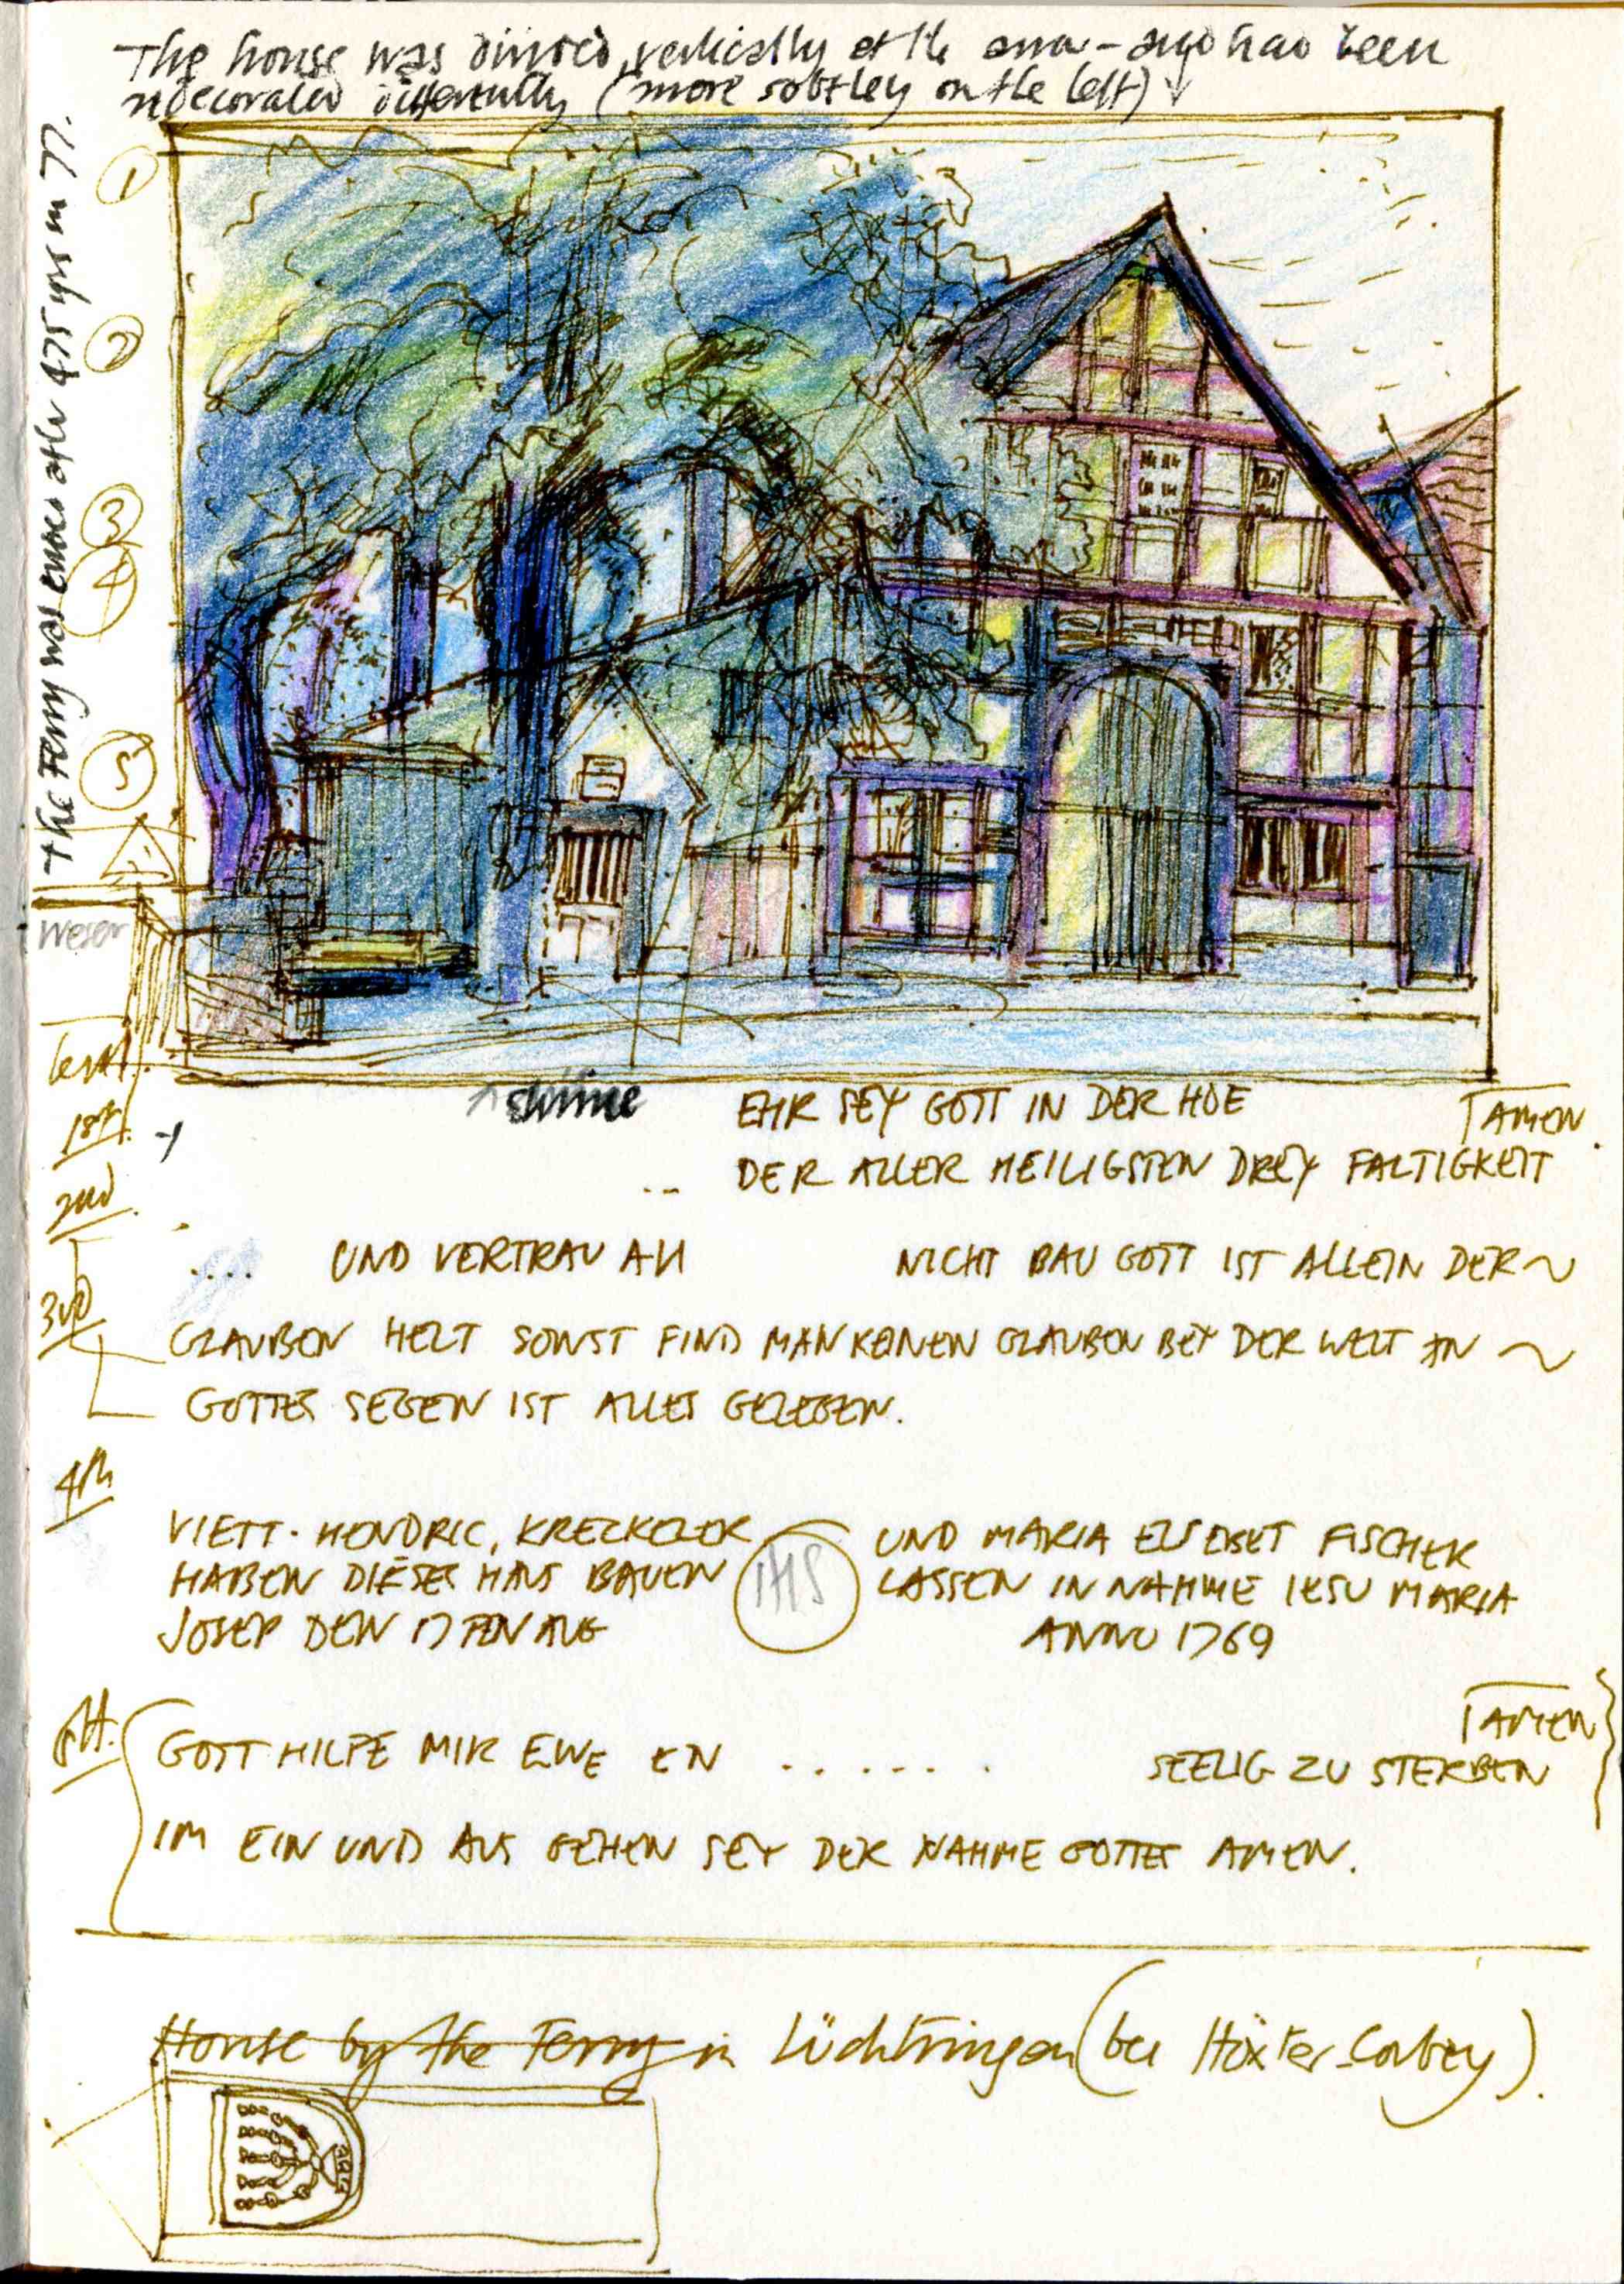 The house was divided vertically at the arrow - and had been
redecorated differently (more subtley on the left)
The Ferry was ended after 475 yrs in 77.
1
2
3
4
5
Weser
shrine
level.
1st.
EHR SEY GOTT IN DER HOE
AMEN.
DER ALLER HEILIGSTEN DREY FALTIGKEIT
2nd
.... UND VERTRAU AN NICHT BAU GOTT IST ALLEIN DER ~
3rd
GLAUBEN HELT SONST FIND MAN KEINEN GLAUBEN BEY DER WELT AN ~
GOTTES SEGEN IST ALLES GELEGEN.
4th
VIETT. HENDRIC, KRECKELER IHS UND MARIA ELSEBET FISCHER
HABEN DIESES HAUS BAUEN LASSEN IN NAHME IESU MARIA
JOSEP DEN 17 TEN AUG ANNO 1769
5th.
AMEN
GOTT HILFE MIR EWE EN ...... SEELIG ZU STERBEN
IM EIN UND AUS GEHEN SEY DER NAHME GOTTES AMEN.
House by the Ferry in Lüchtringen (bei Höxter-Corvey).